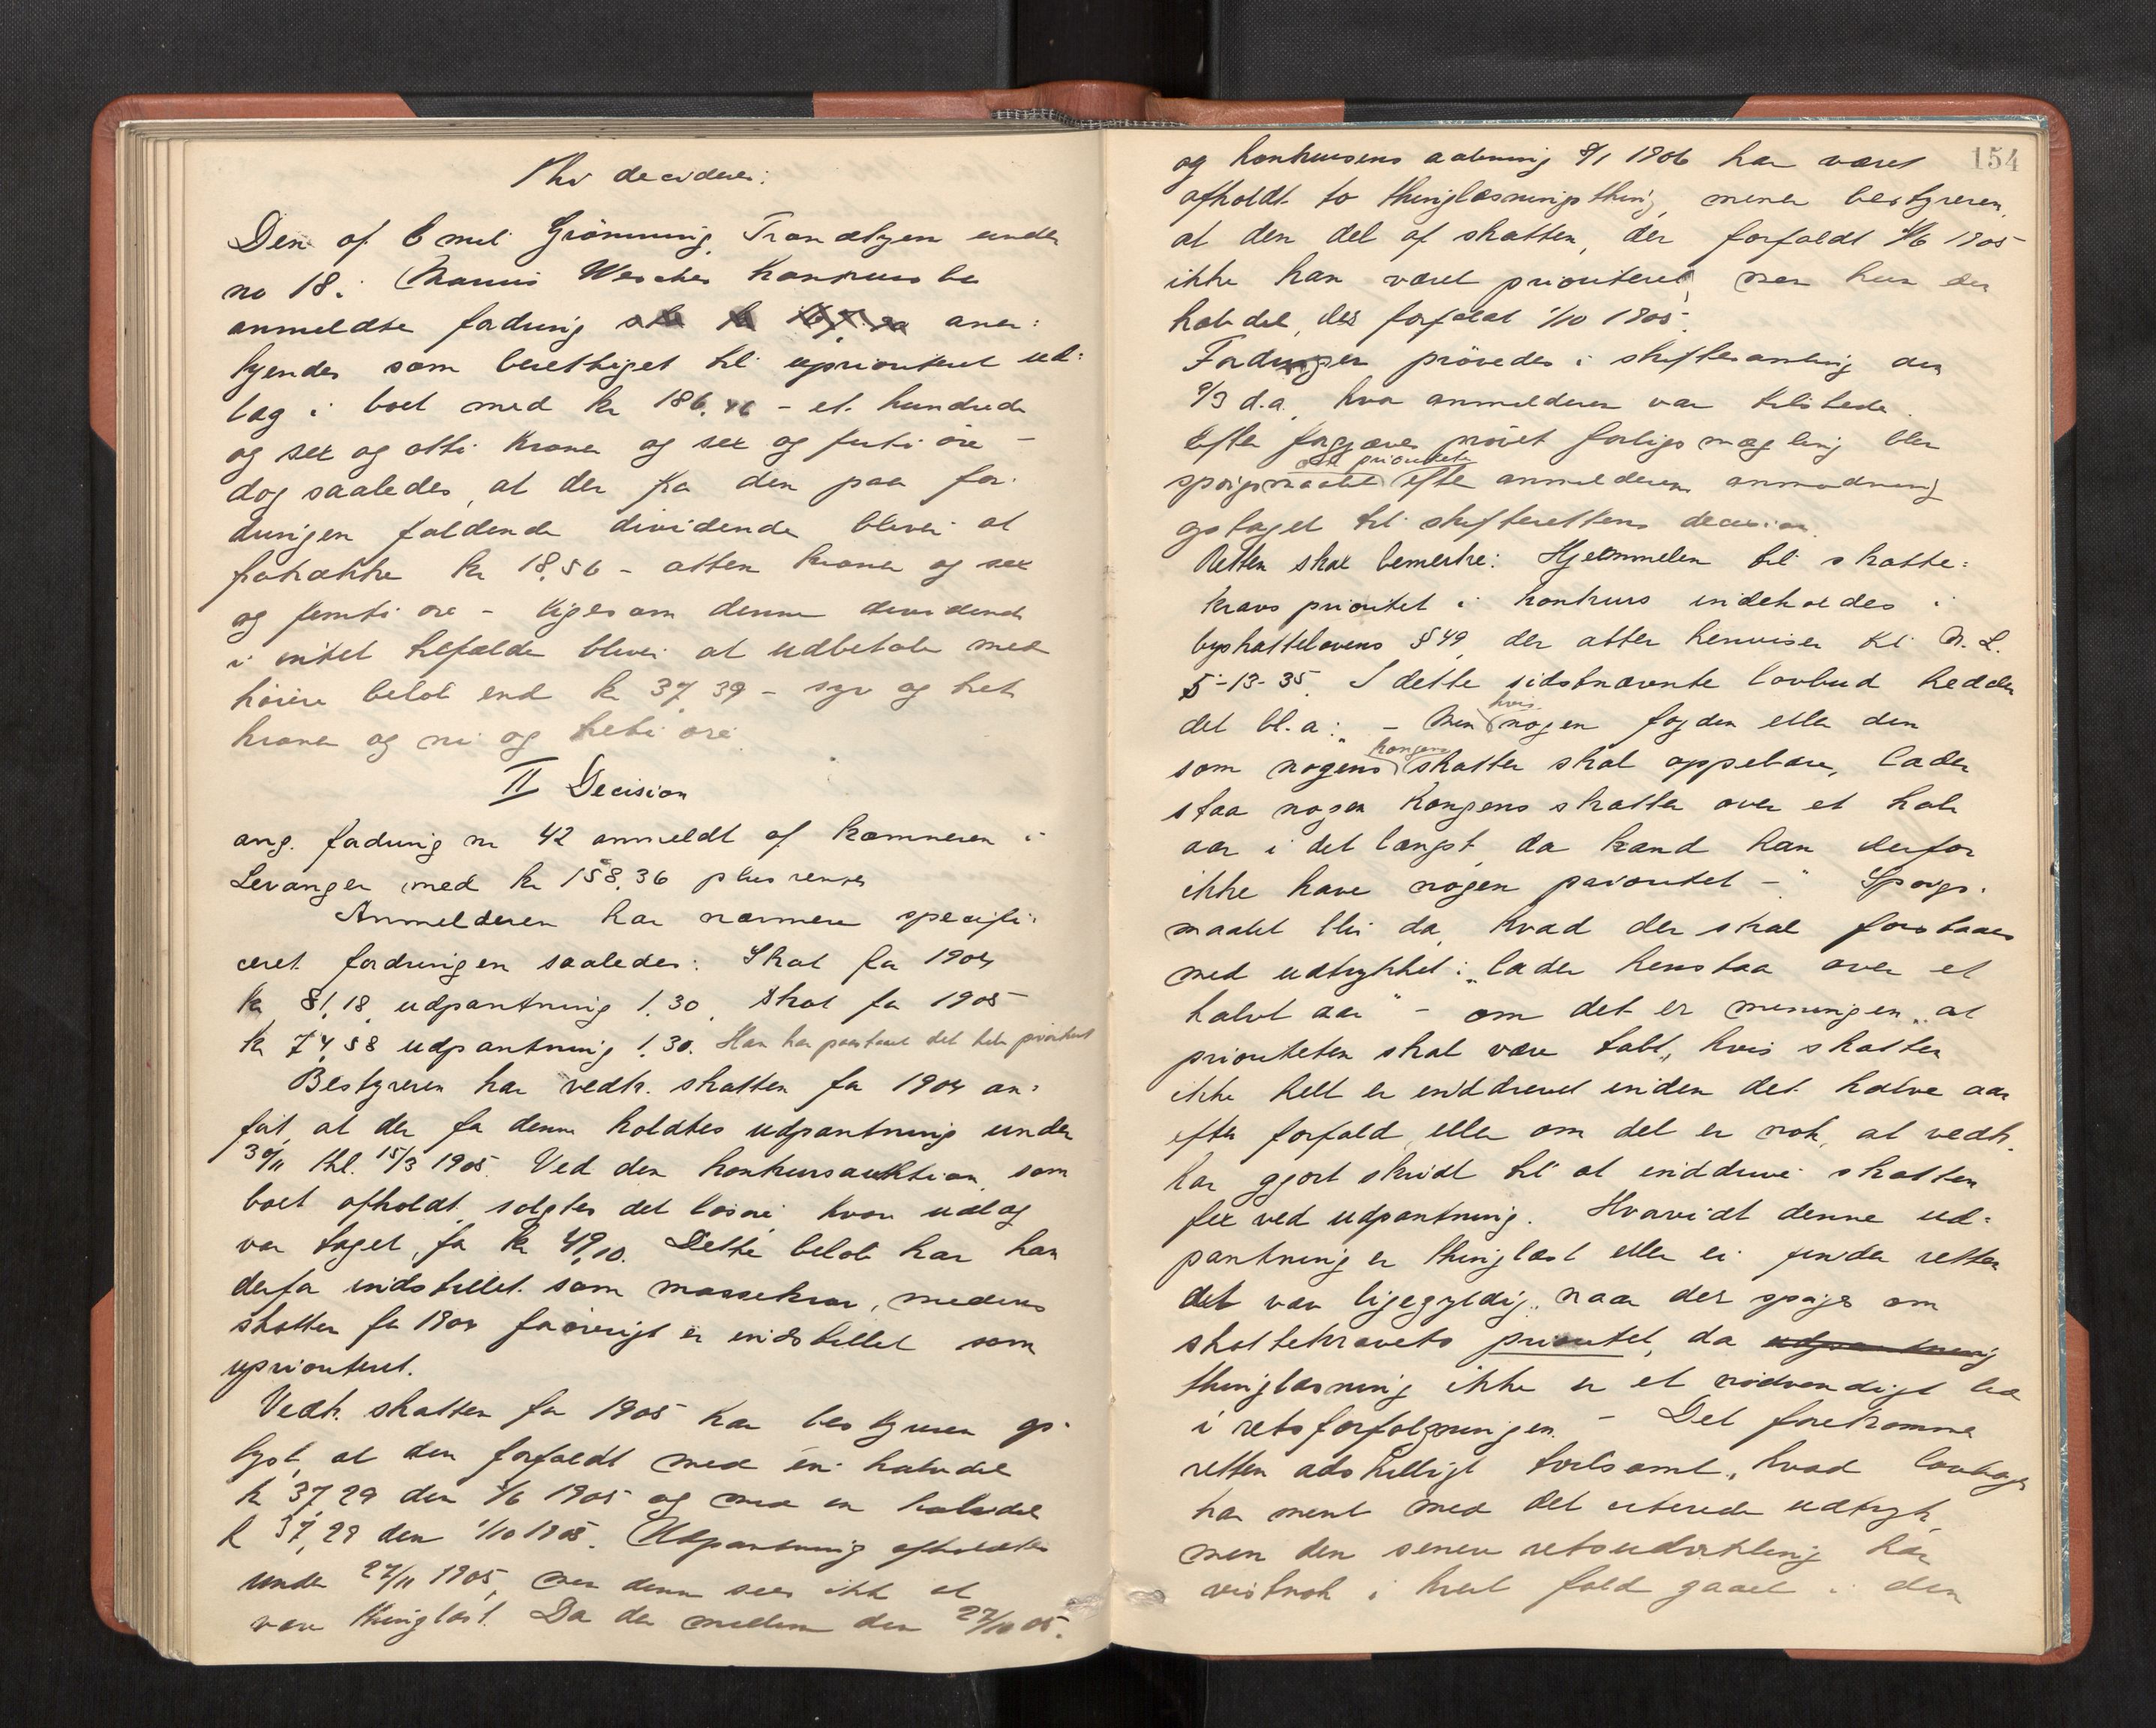 Thi decideres:
Den af Emil Grönning, Trondhjem under
no 18 i Marius Wesches konkursbo
anmeldte fordring aner-
kjendes som berettiget til uprioriteret ud-
læg i boet med kr 186,46 - et hundrede
og sex og otti kroner og sex og firti öre -
dog saaledes, at der fra den paa for-
dringen faldende dividende bliver at
fratrække kr 18,56 - atten kroner og sex
og femti öre - ligesom denne dividende
i intet tilfælde bliver at udbetale med
höiere belöb end kr 37,39 - syv og treti
kroner og ni og treti öre.
II Decision
ang. fordring nr 42 anmeldt af kæmneren i
Levanger med kr 158,36 plus renter
Anmelderen har nærmere specifi-
ceret fordringen saaledes: Skat for 1904
kr 81,18, udpantning 1.30, Skat for 1905
kr 74,58 udpantning 1.30. Han har paastaaet det hele prioritert
Bestyreren har vedk. skatten for 1904 an-
fört, at der for denne holdtes udpantning under
30/11 thl. 15/3 1905. Ved den konkursauktion, som
boet afholdt, solgtes det lösöre, hvori udlæg
var taget, for kr 49,10. Dette belöb har han
derfor indstillet som massekrav, medens
skatten for 1904 forövrigt er indstillet som
uprioriteret.
Vedk. skatten for 1905 har bestyreren op-
lyst, at den forfaldt med en halvdel
kr 37,29 den 1/6 1905 og med en halvdel
kr 37,29 den 1/10 1905. Udpantning afholdtes
under 27/11 1905, men denne sees ikke at
være thinglæst. Da der mellem den 27/10 05.
154
og konkursens aabning 8/1 1906 har været
afholdt to thinglæsningsthing, mener bestyreren,
at den del af skatten, der forfaldt 1/6 1905
ikke kan være prioriteret, men kun den
halvdel, der forfaldt 1/10 1905.
Fordringen prövedes i skiftesamling den
9/3 d.a., hvor anmelderen var tilstede.
Efter forgjæves prövet forligsmægling blev
om prioritet
spörgsmaalet efter anmelderens anmodning
optaget til skifterettens decision.
Retten skal bemerke: Hjemmelen til skatte-
kravs prioritet i konkurs indeholdes i
byskattelovens § 49, der atter henviser til N. L.
5-13-35. I dette sidstnævnte lovbud hedder
hvis
det bl.a.: „- Men nogen fogden eller den
kongens
som nogens skatter skal oppebære, lader
staa nogen Kongens skatter over et halv
aar i det længst, da kand han derfor
ikke have nogen prioritet -" Spörgs-
maalet blir da, hvad der skal forstaaes
med udtrykket: „lader henstaa over et
halvt aar" - om det er meningen, at
prioriteten skal være tabt, hvis skatten
ikke helt er inddrevet inden det halve aar
efter forfald, eller om det er nok, at vedk.
har gjort skridt til at inddrive skatten
f ex ved udpantning. Hvorvidt denne ud-
pantning er thinglæst eller ei finder retten
det være ligegyldig, naar der spörges om
skattekravets prioritet, da udpantning
thinglæsning ikke er et nödvendigt led
i retsforfölgningen. - Det forekommer
retten adskilligt tvilsomt, hvad lovboger
har ment med det citerede udtryk,
men den senere retsudvikling har
vistnok i hvert fald gaaet i den